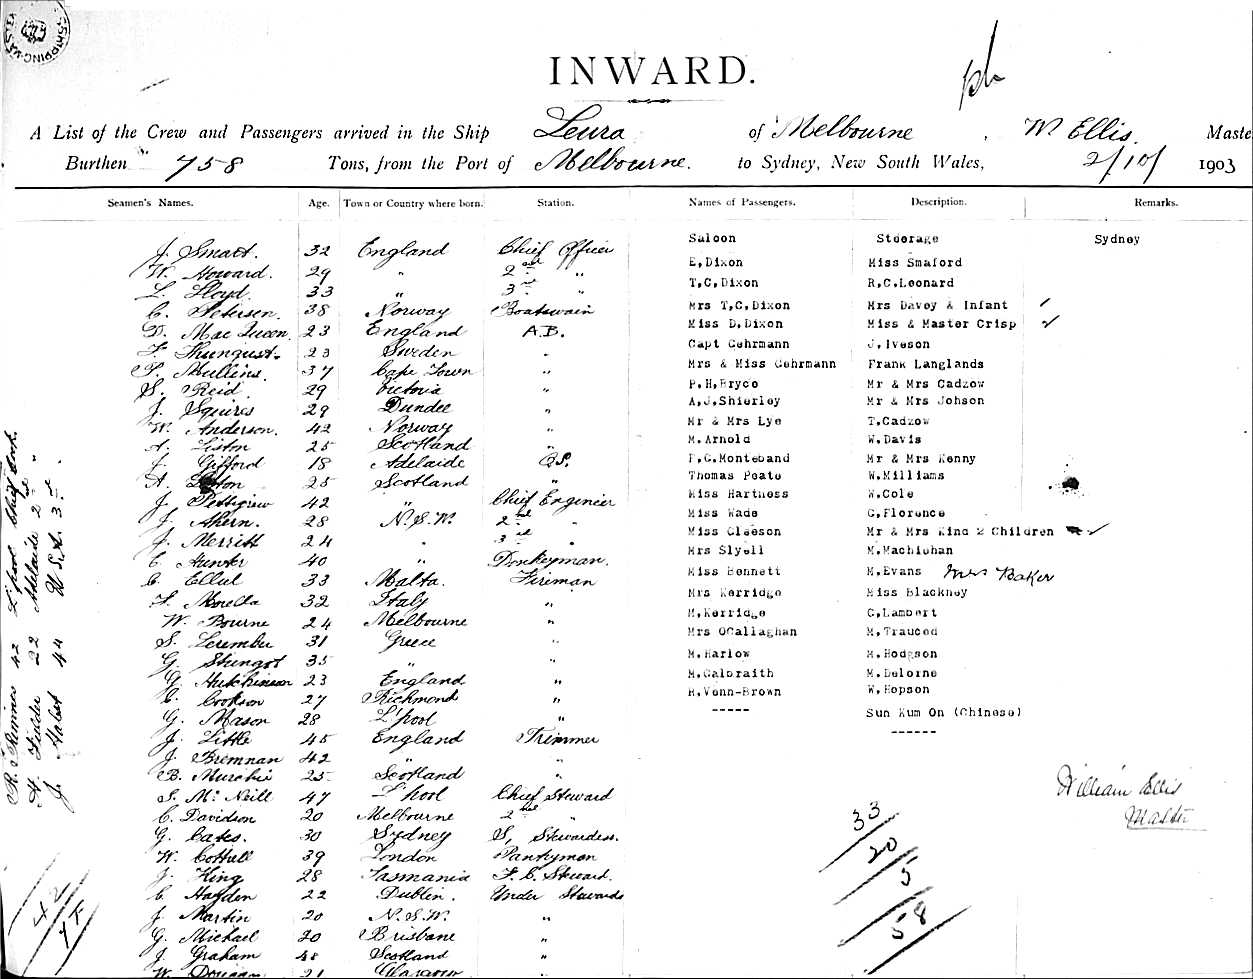 SHIPPING MASTER
INWARD.
A List of the Crew and Passengers arrived in the Ship Leura of Melbourne, W Ellis. Maste
Burthen 758 Tons, from the Port of Melbourne. to Sydney, New South Wales, 2/10/ 1903
Seamen's Names. Age. Town or Country where born. Station. Names of Passengers. Description. Remarks.
Saloon Steerage Sydney
J. Smart. 32 England Chief Officer
W. Howard. 29 " 2nd "
L. Lloyd. 33 " 3rd "
C. Petersen. 38 Norway Boatswain
D. MacQueen. 23 England A.B.
23 Sweden "
P. Mullins. 37 Cape Town "
S. Reid. 29 Victoria "
J. Squires 29 Dundee "
W. Anderson. 42 Norway "
A. Liston 25 Scotland "
J. Gifford 18 Adelaide O.S.
A. 25 Scotland "
J. Pettigrew 42 " Chief Engineer
J. Ahern. 28 N.S.W. 2nd "
J. Merritt 24 " 3rd "
C. Hunter 40 " Donkeyman.
C. Ellul 33 Malta. Fireman
32 Italy "
W. Bourne 24 Melbourne "
S. 31 Greece "
G. 35 " "
G. Hutchinson 23 England "
C. Cookson 27 Richmond "
G. Mason 28 L'pool "
J. Little 45 England Trimmer
J. Bremnan 42 " "
B. Murchie 25 Scotland "
S. McNeill 47 L'pool Chief Steward
C. Davidson 20 Melbourne 2nd "
G. Cates. 30 Sydney S, Stewardess.
W. Cottrell 39 London Pantryman
J. King 28 Tasmania F.C. Steward.
C. Hayden 22 Dublin. Under Stewards
J. Martin 20 N.S.W. "
G. Michael 20 Brisbane "
J. Graham 48 Scotland "
W. 21 Glasgow "
E.Dixon Miss Smaford
T.C.Dixon R.C.Leonard
Mrs T.C.Dixon Mrs Davey & Infant
Miss D.Dixon Miss & Master Crisp
Capt Gehrmann J.Iveson
Mrs & Miss Gehrmann Frank Langlands
P.H.Bryce Mr & Mrs Cadzow
A.J.Shierley Mr & Mrs Johson
Mr & Mrs Lye T.Cadzow
M.Arnold W.Davis
F.G.Monteband Mr & Mrs Kenny
Thomas Peate W.Williams
Miss Hartness W.Cole
Miss Wade G.Florence
Miss Gleeson Mr & Mrs King 2 Children
Mrs Slyell M.Machichan
Miss Bennett M.Evans Mrs Baker
Mrs Kerridge Miss Blackney
M.Kerridge G.Lambert
Mrs OCallaghan M.Trauced
M.Harlow M.Hodgson
M.Galbraith M.Delorne
H.Venn-Brown W.Hopson
----- Sun Kum On (Chinese)
------
William Ellis
Master
33
20
5
58
R. 42 L'pool Chief Cook.
H. Fielder 22 Adelaide 2nd "
J. 44 U.S.A. 3rd "
42